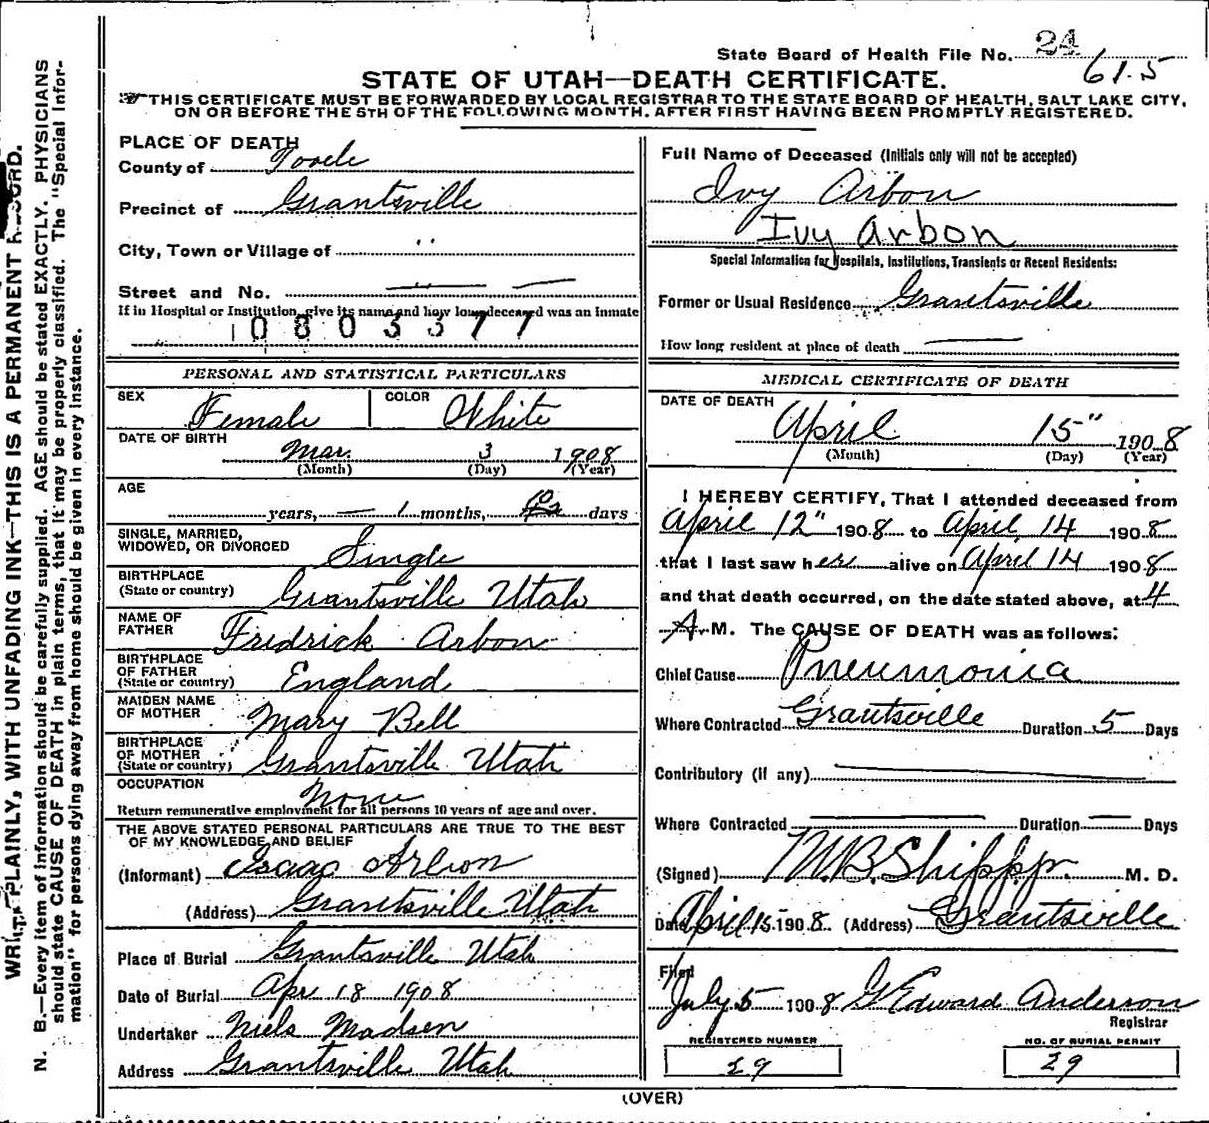 State Board of Health File No. 24
61.5
STATE OF UTAH—DEATH CERTIFICATE.
THIS CERTIFICATE MUST BE FORWARDED BY LOCAL REGISTRAR TO THE STATE BOARD OF HEALTH, SALT LAKE CITY,
ON OR BEFORE THE 5TH OF THE FOLLOWING MONTH. AFTER FIRST HAVING BEEN PROMPTLY REGISTERED.
PLACE OF DEATH
County of Tooele
Precinct of Grantsville
City, Town or Village of "
Street and No. — —
If in Hospital or Institution, give its name and how long deceased was an inmate
0803377
PERSONAL AND STATISTICAL PARTICULARS
SEX Female COLOR White
DATE OF BIRTH Mar. 3 1908
(Month) (Day) (Year)
AGE
years, — 1 months, days
SINGLE, MARRIED, WIDOWED, OR DIVORCED Single
BIRTHPLACE (State or country) Grantsville Utah
NAME OF FATHER Fridrick Arbon
BIRTHPLACE OF FATHER (State or country) England
MAIDEN NAME OF MOTHER Mary Bell
BIRTHPLACE OF MOTHER (State or country) Grantsville Utah
OCCUPATION None
Return remunerative employment for all persons 10 years of age and over.
THE ABOVE STATED PERSONAL PARTICULARS ARE TRUE TO THE BEST
OF MY KNOWLEDGE AND BELIEF
(Informant) Isaac Arbon
(Address) Grantsville Utah
Place of Burial Grantsville Utah
Date of Burial Apr 18 1908
Undertaker Niels Madsen
Address Grantsville Utah
Full Name of Deceased (Initials only will not be accepted)
Ivy Arbon
Ivy Arbon
Special Information for Hospitals, Institutions, Transients or Recent Residents:
Former or Usual Residence Grantsville
How long resident at place of death —
MEDICAL CERTIFICATE OF DEATH
DATE OF DEATH
April 15" 1908
(Month) (Day) (Year)
I HEREBY CERTIFY, That I attended deceased from
April 12" 1908 to April 14 1908
that I last saw her alive on April 14 1908
and that death occurred, on the date stated above, at 4
A. M. The CAUSE OF DEATH was as follows:
Chief Cause Pneumonia
Where Contracted Grantsville Duration 5 Days
Contributory (if any) —
Where Contracted — Duration — Days
(Signed) M. D.
Date April 15 1908 (Address) Grantsville
Filed
July 5 1908 G Edward Anderson
Registrar
REGISTERED NUMBER
29
NO. OF BURIAL PERMIT
29
(OVER)
WRITE PLAINLY, WITH UNFADING INK—THIS IS A PERMANENT RECORD.
N. B.—Every item of information should be carefully supplied. AGE should be stated EXACTLY. PHYSICIANS
should state CAUSE OF DEATH in plain terms, that it may be properly classified. The "Special Infor-
mation" for persons dying away from home should be given in every instance.